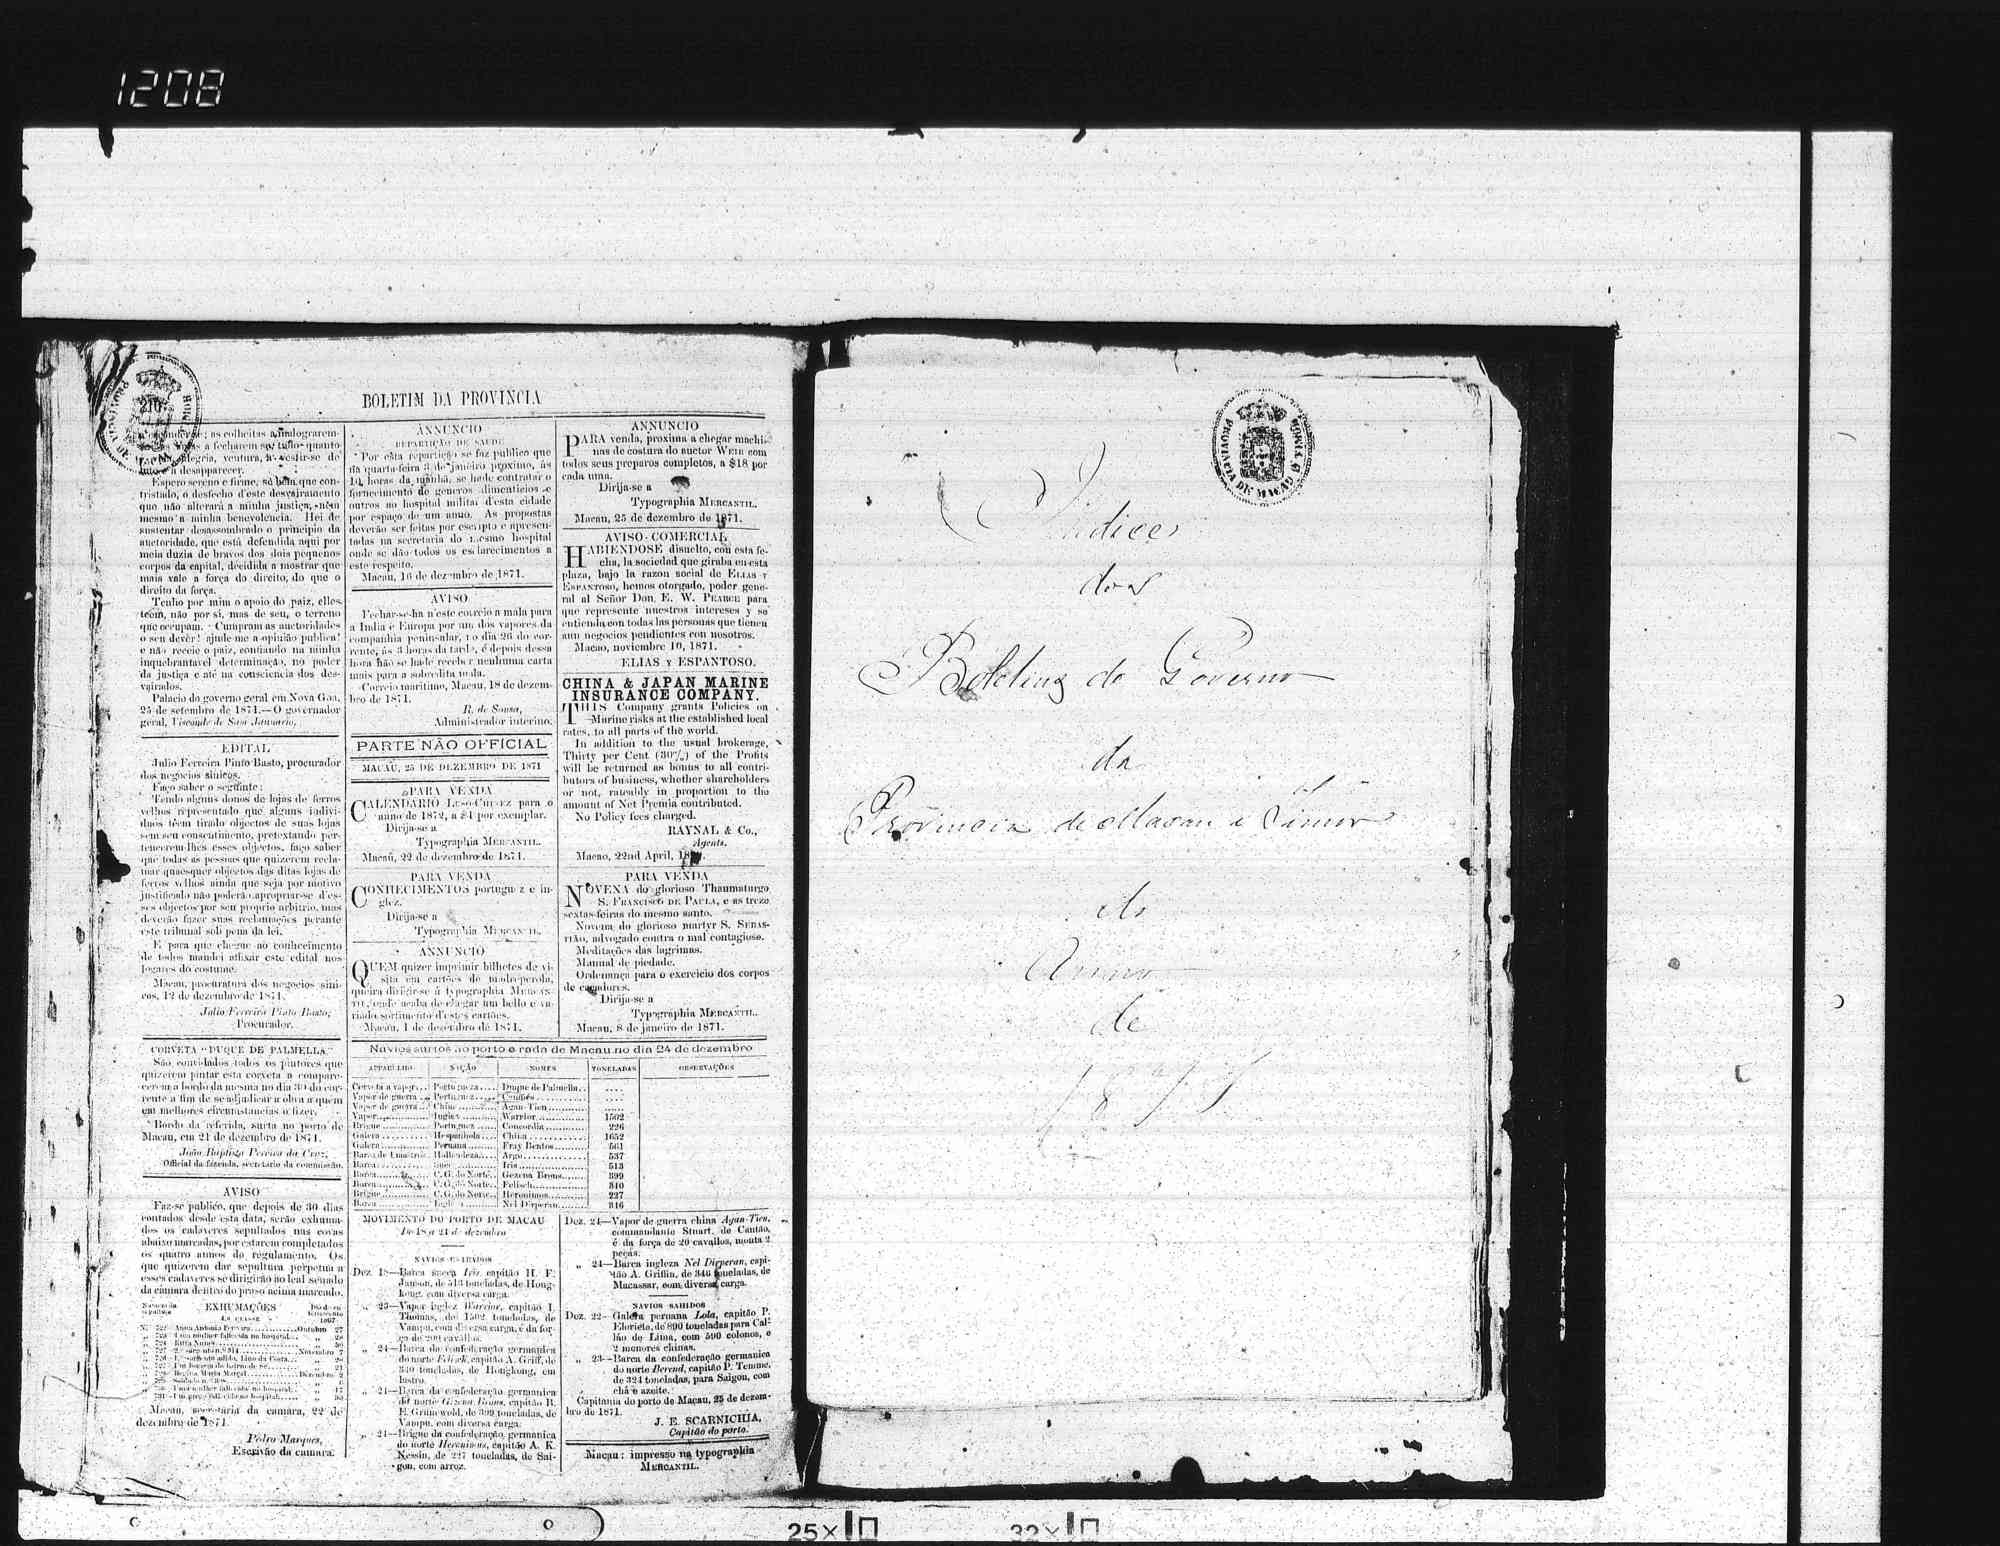 1208
210
BOLETIM DA PROVINCIA
as colheitas mallograrem-
a fecharem se; tudo quanto
alegria, ventura, a vestir-se de
a desapparecer.
Espero sereno e firme, só bem que con-
tristado, o desfecho d'este desvairamento
que não alterará a minha justiça, nem
mesmo a minha benevolencia. Hei de
sustentar desassombrado o principio da
auctoridade, que está defendida aqui por
meia duzia de bravos dos dois pequenos
corpos da capital, decidida a mostrar que
mais vale a força do direito, do que o
direito da força.
Tenho por mim o apoio do paiz, elles
teem, não por si, mas de seu, o terreno
que occupam. Cumpram as auctoridades
o seu dever! ajude-me a opinião publica!
e não receie o paiz, confiando na minha
inquebrantavel determinação, no poder
da justiça e até na consciencia dos des-
vairados.
Palacio do governo geral em Nova Goa,
25 de setembro de 1871.—O governador
geral, Visconde de San Januario.
EDITAL
Julio Ferreira Pinto Basto, procurador
dos negocios sinicos.
Faço saber o seguinte:
Tendo alguns donos de lojas de ferros
velhos representado que alguns indivi-
duos têem tirado objectos de suas lojas
sem seu consentimento, pretextando per-
tencerem-lhes esses objectos, faço saber
que todas as pessoas que quizerem recla-
mar quaesquer objectos das ditas lojas de
ferros velhos ainda que seja por motivo
justificado não poderão apropriar-se d'es-
ses objectos por seu proprio arbitrio, mas
deverão fazer suas reclamações perante
este tribunal sob pena da lei.
E para que chegue ao conhecimento
de todos mandei affixar este edital nos
logares do costume.
Macau, procuratura dos negocios sini-
cos, 12 de dezembro de 1871.
Julio Ferreira Pinto Basto,
Procurador.
CORVETA "DUQUE DE PALMELLA"
São convidados todos os pintores que
quizerem pintar esta corveta a compare-
cerem a bordo da mesma no dia 30 do cor-
rente a fim de se adjudicar a obra a quem
em melhores circumstancias o fizer.
Bordo da referida, surta no porto de
Macau, em 21 de dezembro de 1871.
João Baptista Pereira da Cruz,
Official da fazenda, secretario da commissão.
AVISO
Faz-se publico, que depois de 30 dias
contados desde esta data, serão exhuma-
dos os cadaveres sepultados nas covas
abaixo marcadas, por estarem completados
os quatro annos do regulamento. Os
que quizerem dar sepultura perpetua a
esses cadaveres se dirigirão ao leal senado
da camara dentro do praso acima marcado.
EXHUMAÇÕES
1.ª CLASSE
1867
Anna Antonia Ferreira Outubro 27
Uma mulher fallecida no hospital
Macau, secretaria da camara, 22 de
dezembro de 1871.
Pedro Marques,
Escrivão da camara.
ANNUNCIO
REPARTIÇÃO DE SAUDE
Por esta repartição se faz publico que
da quarta-feira 3 de janeiro proximo, ás
10 horas da manhã, se hade contratar o
fornecimento de generos alimenticios e
outros ao hospital militar d'esta cidade
por espaço de um anno. As propostas
deverão ser feitas por escripto e apresen-
tadas na secretaria do mesmo hospital
onde se dão todos os esclarecimentos a
este respeito.
Macau, 16 de dezembro de 1871.
AVISO
Fechar-se-ha n'este correio a mala para
a India e Europa por um dos vapores da
companhia peninsular, no dia 26 do cor-
rente, ás 3 horas da tarde, e depois dessa
hora não se hade receber nenhuma carta
mais para a sobredita mala.
Correio maritimo, Macau, 18 de dezem-
bro de 1871.
R. de Sousa,
Administrador interino.
PARTE NÃO OFFICIAL
MACAU, 25 DE DEZEMBRO DE 1871
PARA VENDA
CALENDARIO LUSO-CHINEZ para o
anno de 1872, a $1 por exemplar.
Dirija-se a
Typographia MERCANTIL.
Macau, 22 de dezembro de 1871.
PARA VENDA
CONHECIMENTOS portuguez e in-
glez.
Dirija-se a
Typographia MERCANTIL.
ANNUNCIO
QUEM quizer imprimir bilhetes de vi-
sita em cartões de madreperola,
queira dirigir-se á typographia MERCAN-
TIL, onde acaba de chegar um bello e va-
riado sortimento d'estes cartões.
Macau, 1 de dezembro de 1871.
ANNUNCIO
PARA venda, proxima a chegar machi-
nas de costura do auctor WEIR com
todos seus preparos completos, a $18 por
cada uma.
Dirija-se a
Typographia MERCANTIL.
Macau, 25 de dezembro de 1871.
AVISO COMERCIAL
HABIENDOSE disuelto, con esta fe-
cha, la sociedad que giraba en esta
plaza, bajo la razon social de ELIAS Y
ESPANTOSO, hemos otorgado, poder gene-
ral al Señor Don E. W. PEARCE para
que represente nuestros intereses y se
entienda con todas las personas que tienen
aun negocios pendientes con nosotros.
Macao, noviembre 10, 1871.
ELIAS Y ESPANTOSO.
CHINA & JAPAN MARINE
INSURANCE COMPANY.
THIS Company grants Policies on
Marine risks at the established local
rates, to all parts of the world.
In addition to the usual brokerage,
Thirty per Cent (30%) of the Profits
will be returned as bonus to all contri-
butors of business, whether shareholders
or not, rateably in proportion to the
amount of Net Premia contributed.
No Policy fees charged.
RAYNAL & Co.,
Agents.
Macao, 22nd April, 18
PARA VENDA
NOVENA do glorioso Thaumaturgo
S. FRANCISCO DE PAULA, e as treze
sextas-feiras do mesmo santo.
Novena do glorioso martyr S. SEBAS-
TIÃO, advogado contra o mal contagioso.
Meditações das lagrimas.
Manual de piedade.
Ordenança para o exercicio dos corpos
de caçadores.
Dirija-se a
Typographia MERCANTIL.
Macau, 8 de janeiro de 1871.
Navios surtos no porto e rada de Macau no dia 24 de dezembro
APPARELHO NAÇÃO NOMES TONELADAS OBSERVAÇÕES
Corveta a vapor Portugueza Duque de Palmella
Vapor de guerra Portuguez Camões
Vapor de guerra China Agan-Tien
Vapor Inglez Warrior 1502
Brigue Portuguez Concordia 226
Galera Hespanhola China 1652
Galera Peruana Fray Bentos 561
Barca Hollandeza Argo 537
Barca Iris 513
Barca C. G. do Norte Gezena Brons 399
Barca C. G. do Norte Felisch 310
Brigue C. G. do Norte Heronimos 227
Barca Ingleza Nel Dirperan 346
MOVIMENTO DO PORTO DE MACAU
De 18 a 24 de dezembro
NAVIOS ENTRADOS
Dez. 18—Barca sueca Iris, capitão H. F.
Janson, de 513 toneladas, de Hong-
kong, com diversa carga.
„ 23—Vapor inglez Warrior, capitão I.
Thomas, de 1502 toneladas, de
Vampu, com diversa carga, é da for-
ça de 200 cavallos.
„ 24—Barca da confederação germanica
do norte Felisch, capitão A. Griff, de
310 toneladas, de Hongkong, em
lastro.
„ 24—Barca da confederação germanica
do norte Gezena Brons, capitão R.
F. Grunewold, de 399 toneladas, de
Vampu, com diversa carga.
„ 24—Brigue da confederação germanica
do norte Heronimos, capitão A. K.
Nessin, de 227 toneladas, de Sai-
gon, com arroz.
Dez. 24—Vapor de guerra china Agan-Tien,
commandante Stuart, de Cantão,
é da força de 20 cavallos, monta 2
peças.
„ 24—Barca ingleza Nel Dirperan, capi-
tão A. Griffin, de 346 toneladas, de
Macassar, com diversa carga.
NAVIOS SAHIDOS
Dez. 22—Galera peruana Lola, capitão P.
Elorieta, de 890 toneladas para Cal-
láo de Lima, com 590 colonos, e
2 menores chinas.
„ 23—Barca da confederação germanica
do norte Berend, capitão P. Temme,
de 324 toneladas, para Saigon, com
chá e azeite.
Capitania do porto de Macau, 25 de dezem-
bro de 1871.
J. E. SCARNICHIA,
Capitão do porto.
Macau: impresso na typographia
MERCANTIL.
PROVINCIA DE MACAU E TIMOR
Indices
dos
Boletins do Governo
da
Provincia de Macau e Timor
do
Anno
de
1871
25×
32×